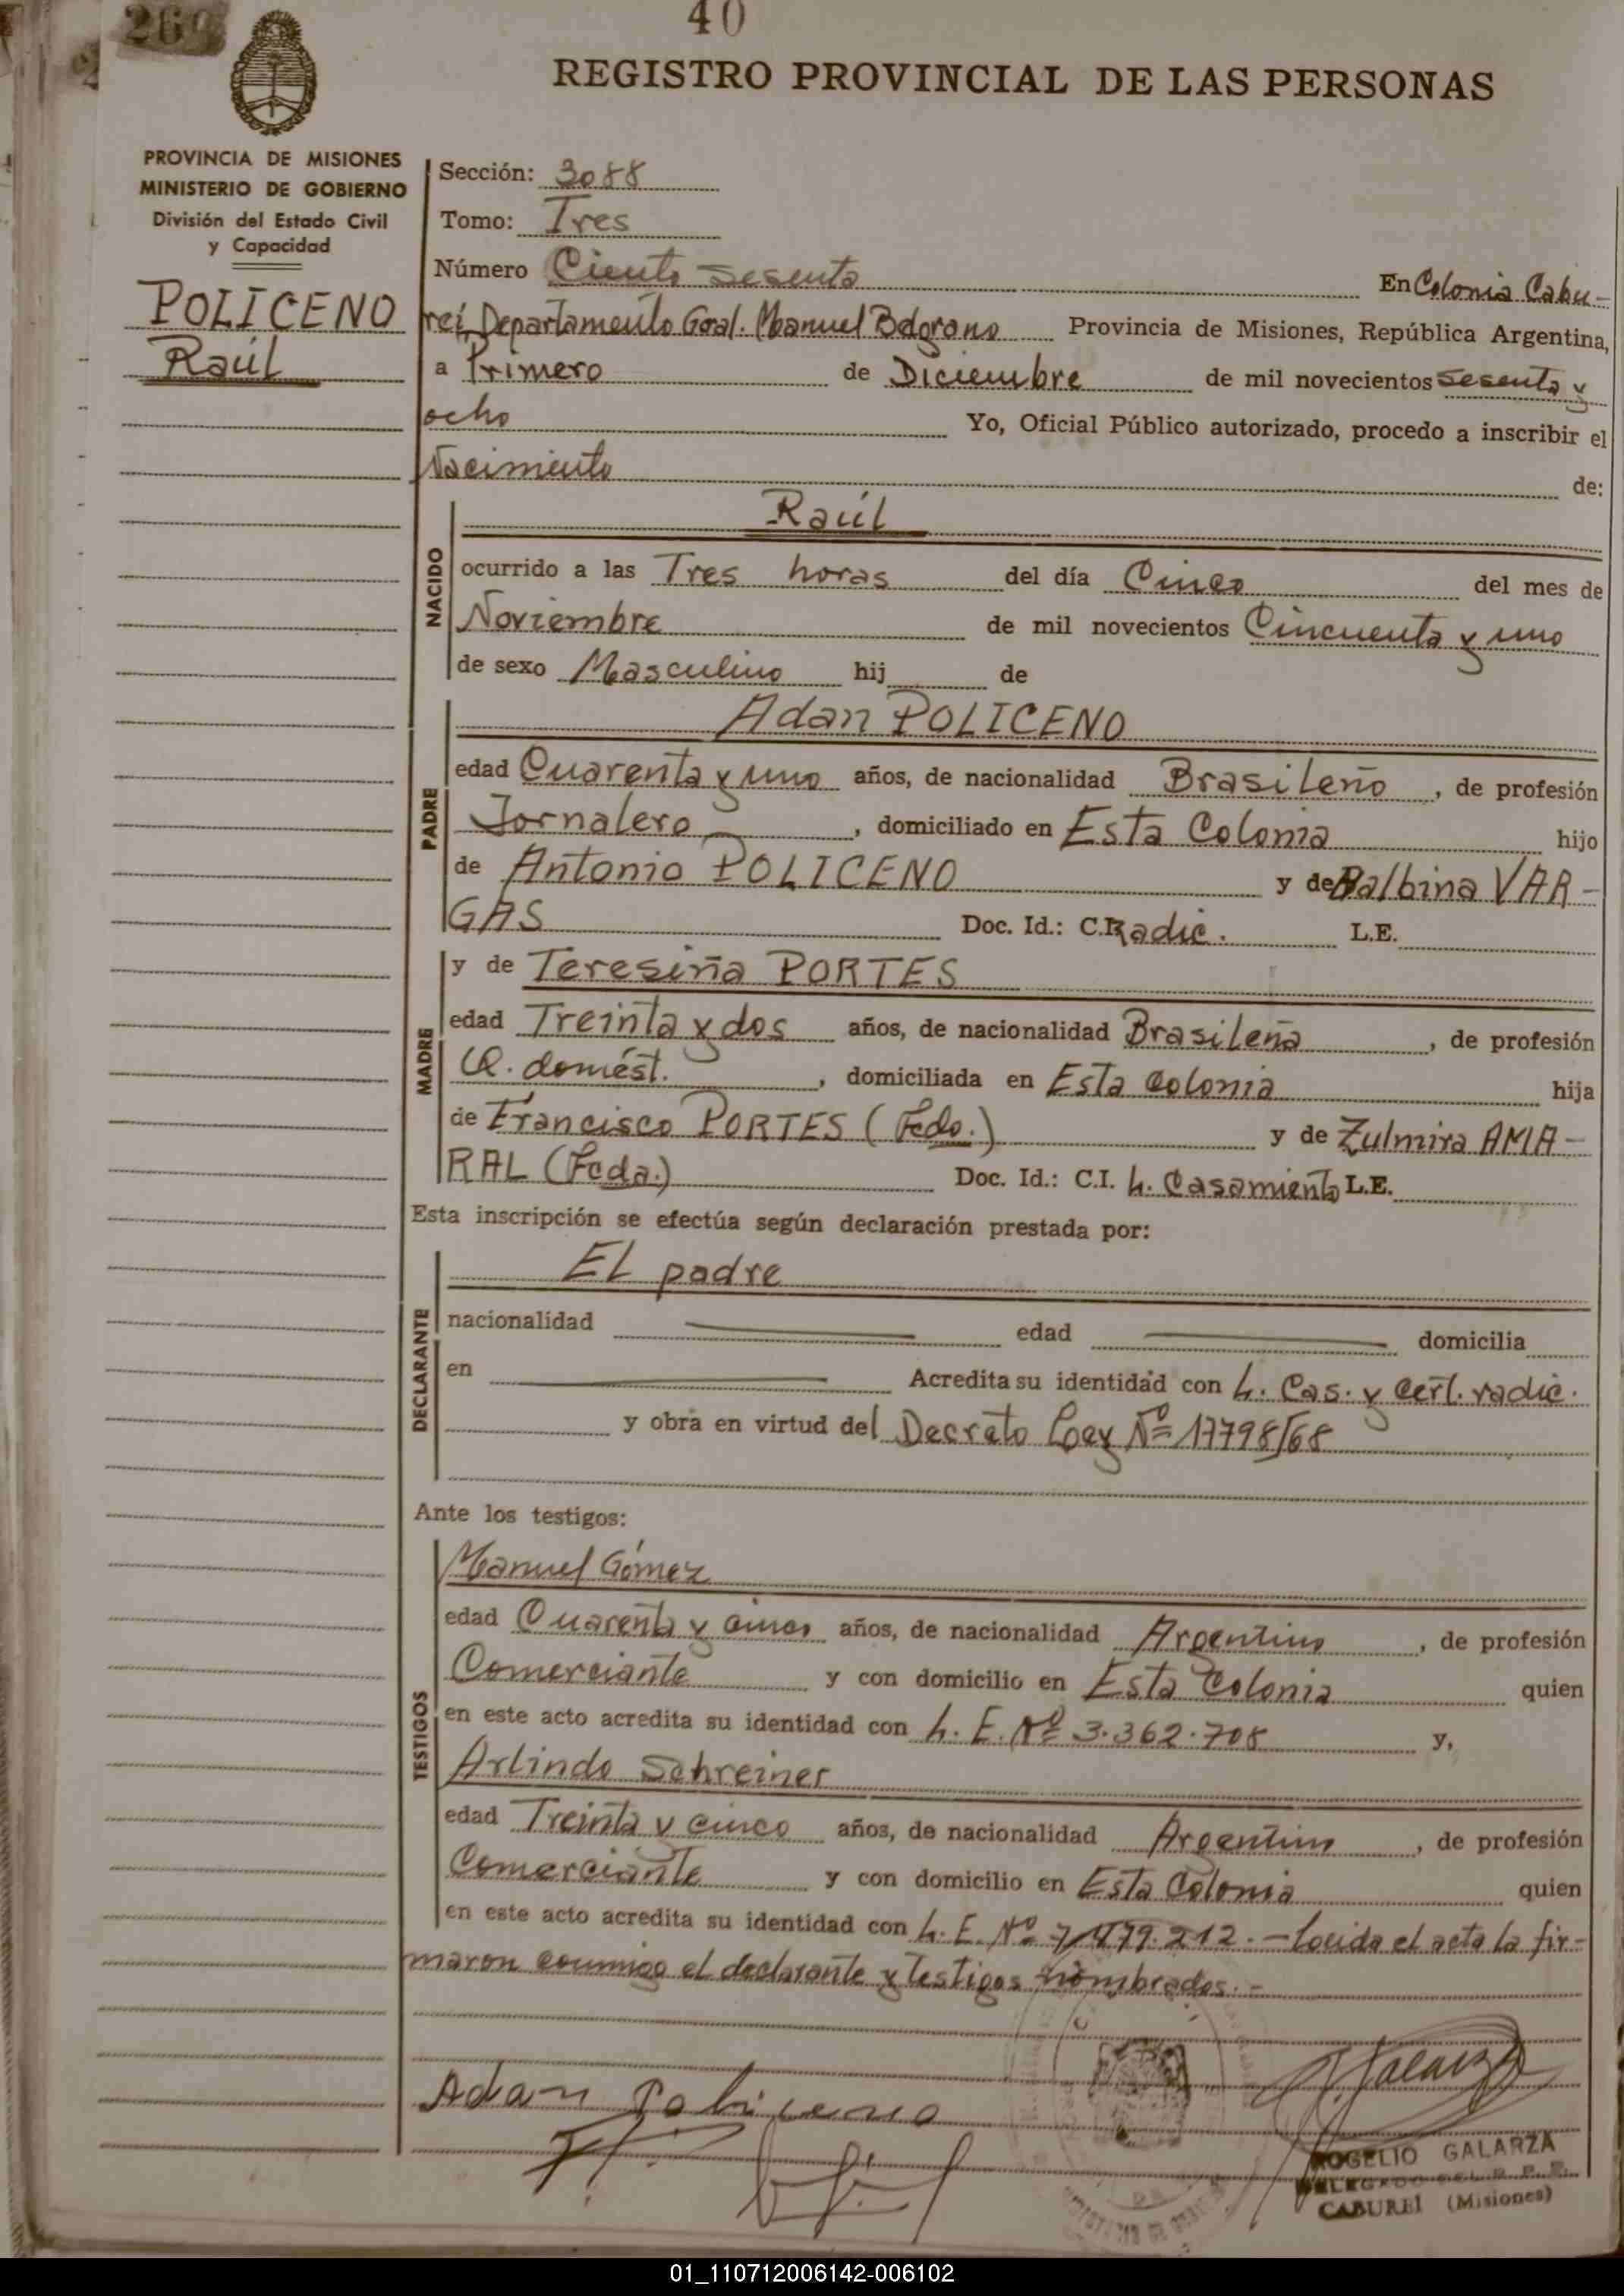 260
40
REGISTRO PROVINCIAL DE LAS PERSONAS
PROVINCIA DE MISIONES
MINISTERIO DE GOBIERNO
División del Estado Civil
y Capacidad
POLICENO
Raúl
Sección: 3088
Tomo: Tres
Número Ciento sesenta En Colonia Cabu-
reí, Departamento Gral. Manuel Belgrano Provincia de Misiones, República Argentina,
a Primero de Diciembre de mil novecientos sesenta y
ocho Yo, Oficial Público autorizado, procedo a inscribir el
Nacimiento de:
NACIDO
Raúl
ocurrido a las Tres horas del día Cinco del mes de
Noviembre de mil novecientos Cincuenta y uno
de sexo Masculino hij de
PADRE
Adan POLICENO
edad Cuarenta y uno años, de nacionalidad Brasileño, de profesión
Jornalero, domiciliado en Esta Colonia hijo
de Antonio POLICENO y de Balbina VAR-
GAS Doc. Id.: C. Radic. L.E.
MADRE
y de Teresiña PORTES
edad Treinta y dos años, de nacionalidad Brasileña, de profesión
Q. domést., domiciliada en Esta Colonia hija
de Francisco PORTES (Fcdo.) y de Zulmira AMA-
RAL (Fcda.) Doc. Id.: C.I. L. Casamiento L.E.
Esta inscripción se efectúa según declaración prestada por:
DECLARANTE
El padre
nacionalidad edad domicilia
en Acredita su identidad con L. Cas. y Cert. radic.
y obra en virtud del Decreto Ley Nº 17798/68
Ante los testigos:
TESTIGOS
Manuel Gómez
edad Cuarenta y cinco años, de nacionalidad Argentino, de profesión
Comerciante y con domicilio en Esta Colonia quien
en este acto acredita su identidad con L. E. Nº 3.362.708 y,
Arlindo Schreiner
edad Treinta y cinco años, de nacionalidad Argentino, de profesión
Comerciante y con domicilio en Esta Colonia quien
en este acto acredita su identidad con L. E. Nº 7.479.212.- Leída el acta la fir-
maron conmigo el declarante y testigos nombrados.-
Adan Policeno
ROGELIO GALARZA
DELEGADO DEL R. P. P.
CABUREI (Misiones)
01_110712006142-006102